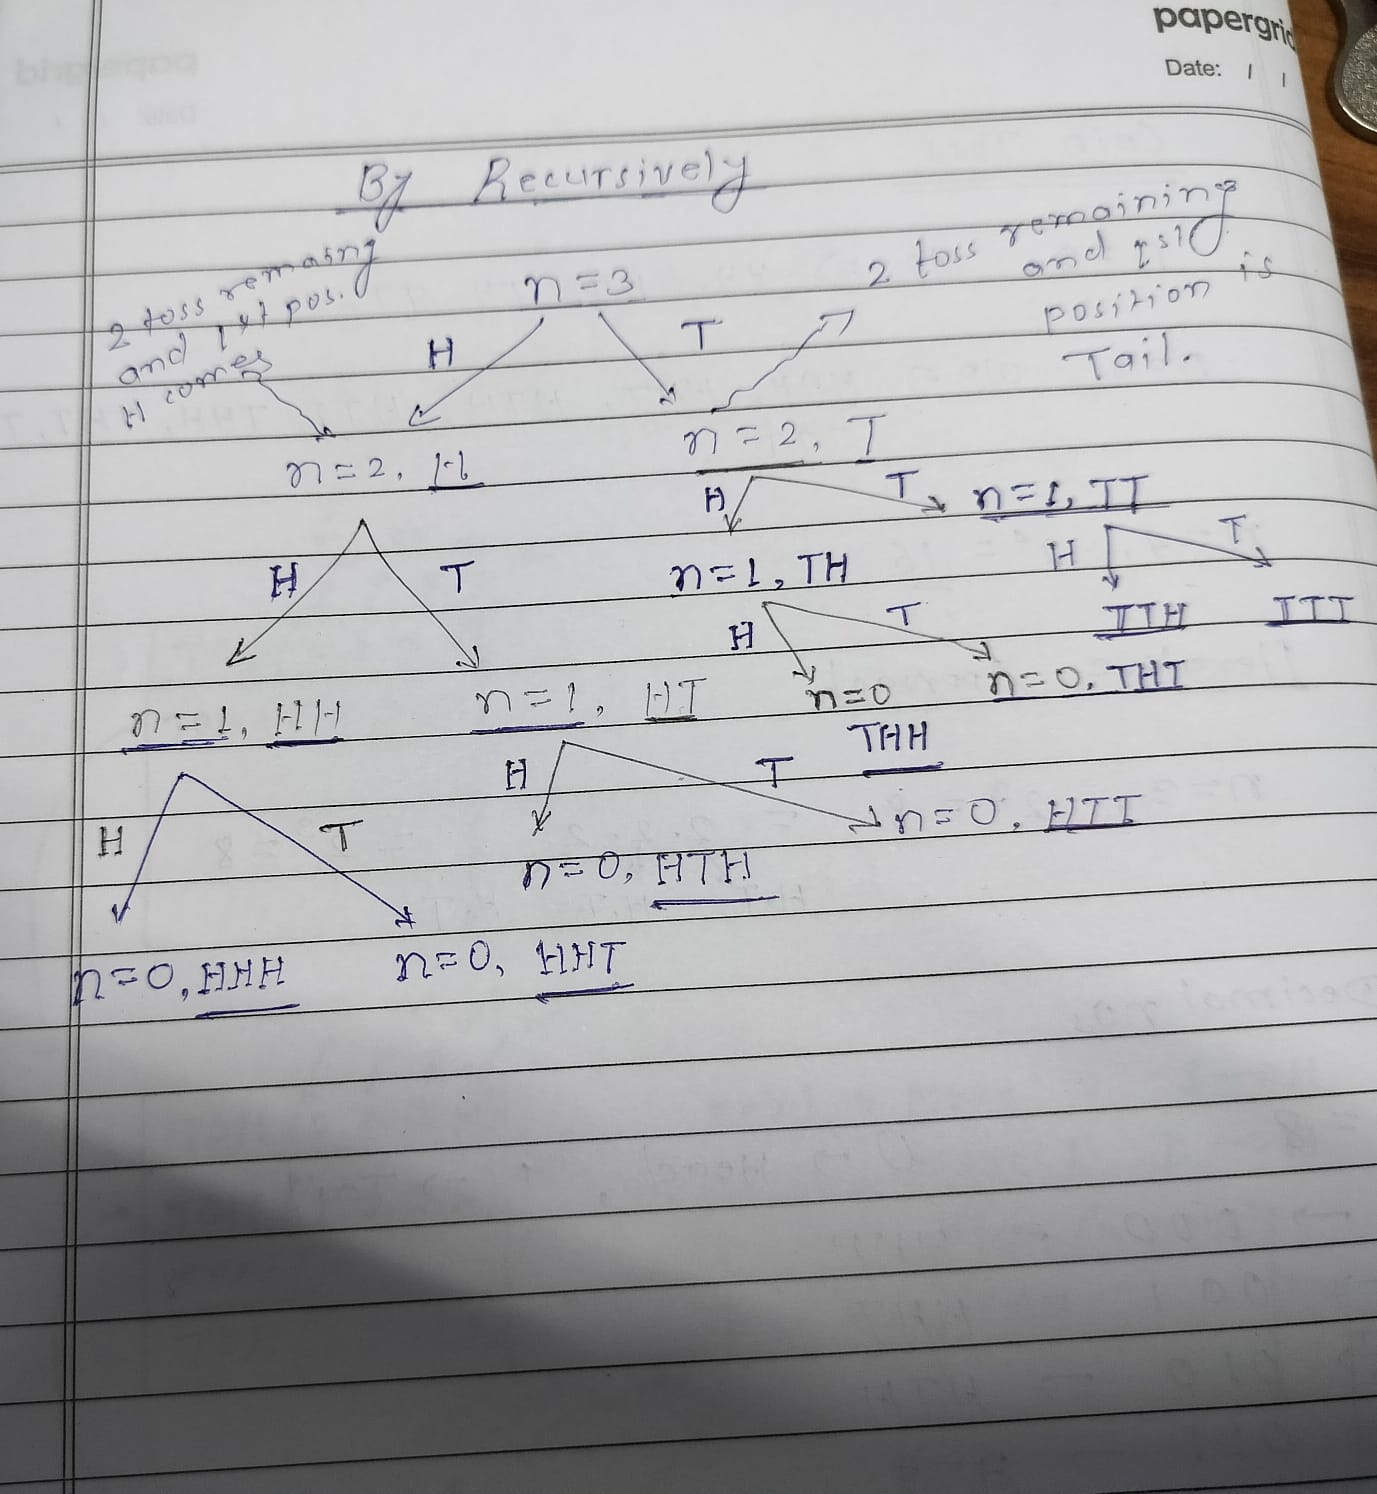 papergrid
Date: / /
By Recursively
2 toss remaing
and 1st pos.
H comes
2 toss remaining
and 1st
position is
Tail.
n=3
H T
n=2, H
n=2, T
H T
n=1, TT
H T
n=1, TH
H T
TTH TTT
H T
n=1, HH
n=1, HT
n=0
THH
n=0, THT
H T
n=0, HTT
H T
n=0, HTH
n=0, HHH
n=0, HHT